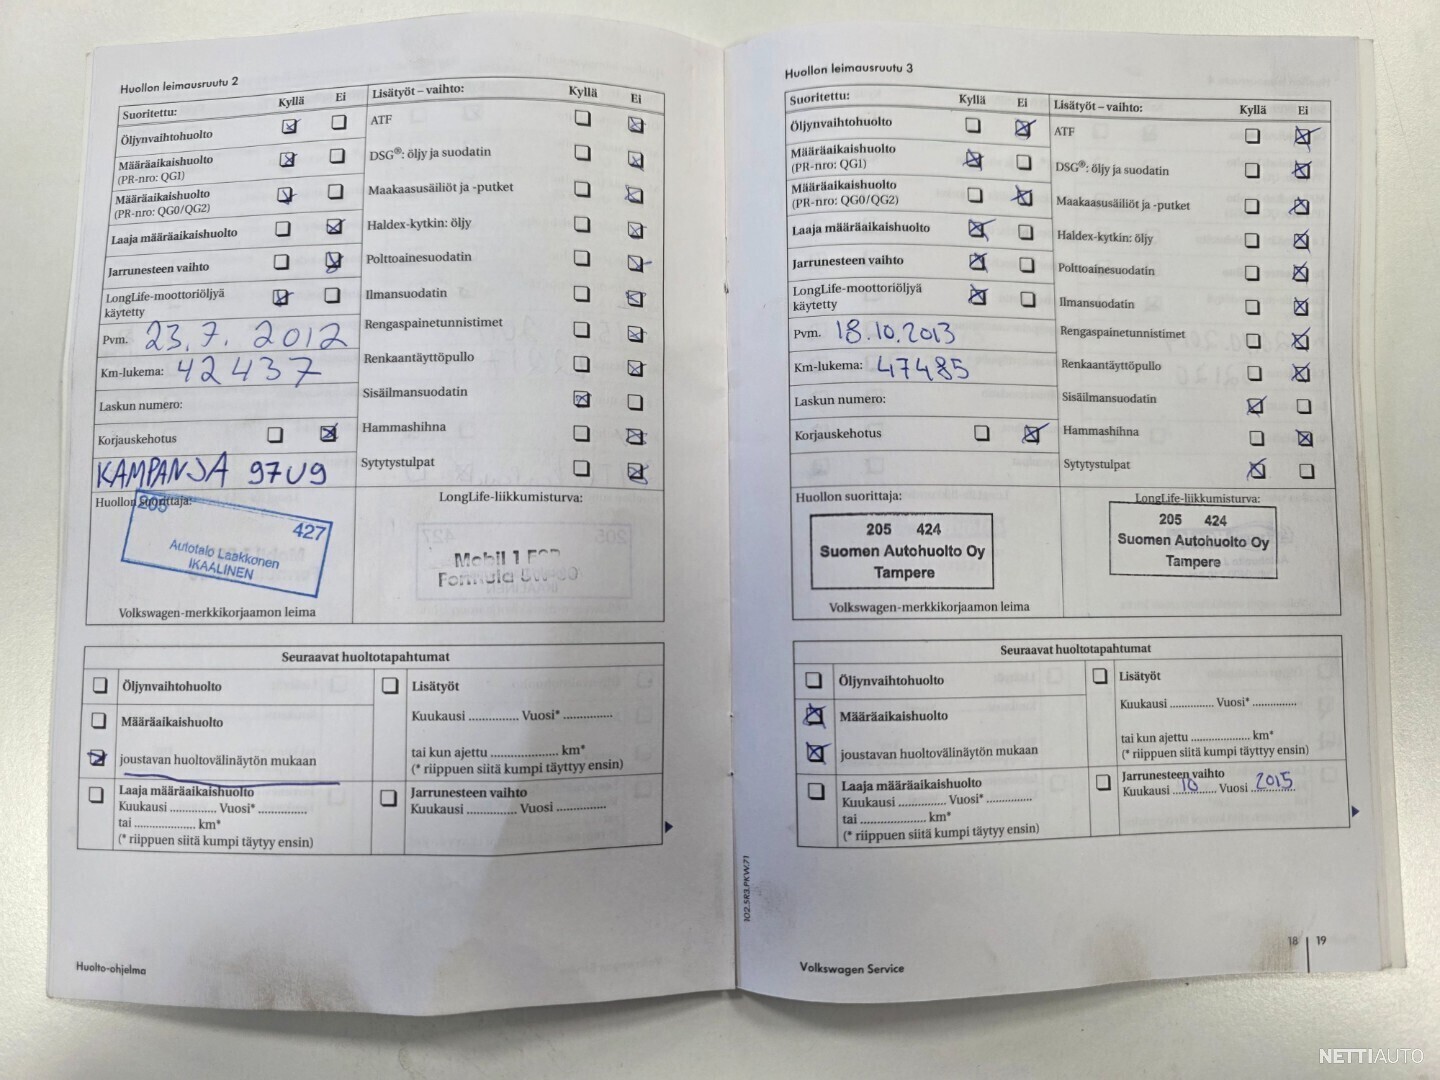 Huollon leimausruutu 2
Suoritettu: Kyllä Ei
Öljynvaihtohuolto
Määräaikaishuolto
(PR-nro: QG1)
Määräaikaishuolto
(PR-nro: QG0/QG2)
Laaja määräaikaishuolto
Jarrunesteen vaihto
LongLife-moottoriöljyä
käytetty
Pvm. 23.7.2012
Km-lukema: 42437
Laskun numero:
Korjauskehotus
KAMPANJA 97U9
Huollon suorittaja:
205 427
Autotalo Laakkonen
IKAALINEN
Volkswagen-merkkikorjaamon leima
Lisätyöt – vaihto: Kyllä Ei
ATF
DSG®: öljy ja suodatin
Maakaasusäiliöt ja -putket
Haldex-kytkin: öljy
Polttoainesuodatin
Ilmansuodatin
Rengaspainetunnistimet
Renkaantäyttöpullo
Sisäilmansuodatin
Hammashihna
Sytytystulpat
LongLife-liikkumisturva:
Mobil 1 ESP
Formula 5W-30
Seuraavat huoltotapahtumat
Öljynvaihtohuolto
Määräaikaishuolto
joustavan huoltovälinäytön mukaan
Laaja määräaikaishuolto
Kuukausi .............. Vuosi* ..............
tai .................... km*
(* riippuen siitä kumpi täytyy ensin)
Lisätyöt
Kuukausi .............. Vuosi* ..............
tai kun ajettu .................... km*
(* riippuen siitä kumpi täyttyy ensin)
Jarrunesteen vaihto
Kuukausi .............. Vuosi ..............
Huolto-ohjelma
Huollon leimausruutu 3
Suoritettu: Kyllä Ei
Öljynvaihtohuolto
Määräaikaishuolto
(PR-nro: QG1)
Määräaikaishuolto
(PR-nro: QG0/QG2)
Laaja määräaikaishuolto
Jarrunesteen vaihto
LongLife-moottoriöljyä
käytetty
Pvm. 18.10.2013
Km-lukema: 47485
Laskun numero:
Korjauskehotus
Huollon suorittaja:
205 424
Suomen Autohuolto Oy
Tampere
Volkswagen-merkkikorjaamon leima
Lisätyöt – vaihto: Kyllä Ei
ATF
DSG®: öljy ja suodatin
Maakaasusäiliöt ja -putket
Haldex-kytkin: öljy
Polttoainesuodatin
Ilmansuodatin
Rengaspainetunnistimet
Renkaantäyttöpullo
Sisäilmansuodatin
Hammashihna
Sytytystulpat
LongLife-liikkumisturva:
205 424
Suomen Autohuolto Oy
Tampere
Seuraavat huoltotapahtumat
Öljynvaihtohuolto
Määräaikaishuolto
joustavan huoltovälinäytön mukaan
Laaja määräaikaishuolto
Kuukausi .............. Vuosi* ..............
tai .................... km*
(* riippuen siitä kumpi täytyy ensin)
Lisätyöt
Kuukausi .............. Vuosi* ..............
tai kun ajettu .................... km*
(* riippuen siitä kumpi täyttyy ensin)
Jarrunesteen vaihto
Kuukausi 10 Vuosi 2015
102.5R3.PKW.71
18 | 19
Volkswagen Service
NETTIAUTO